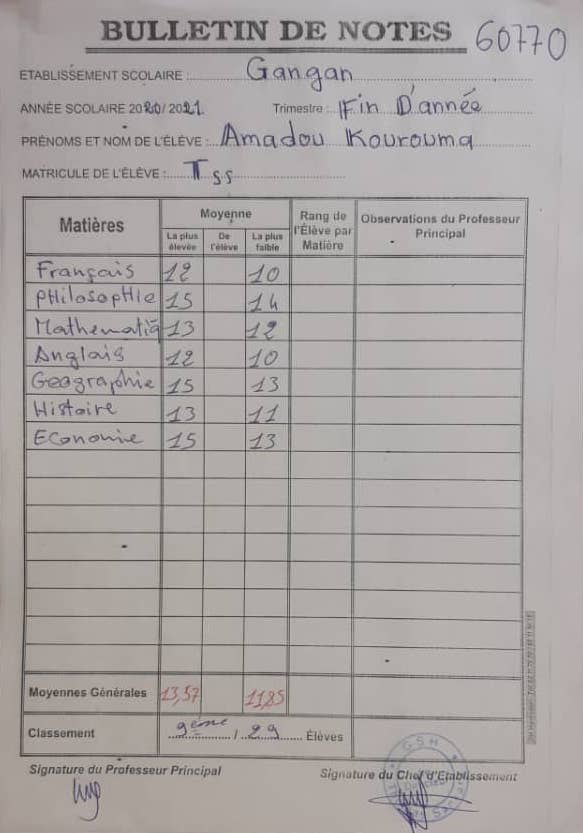 BULLETIN DE NOTES 60770
ETABLISSEMENT SCOLAIRE : Gangan
ANNÉE SCOLAIRE 2020/ 2021 Trimestre : Fin D'année
PRÉNOMS ET NOM DE L'ÉLÈVE : Amadou Kourouma
MATRICULE DE L'ÉLÈVE : Tss
Matières Moyenne Rang de l'Élève par Matière Observations du Professeur Principal
La plus élevée De l'élève La plus faible
Français 12 10
PHilosophie 15 14
Mathématiq 13 12
Anglais 12 10
Geographie 15 13
Histoire 13 11
Economie 15 13
Moyennes Générales 13,57 11,85
Classement 9ème / 29 Élèves
Signature du Professeur Principal Signature du Chef d'Etablissement
GSH